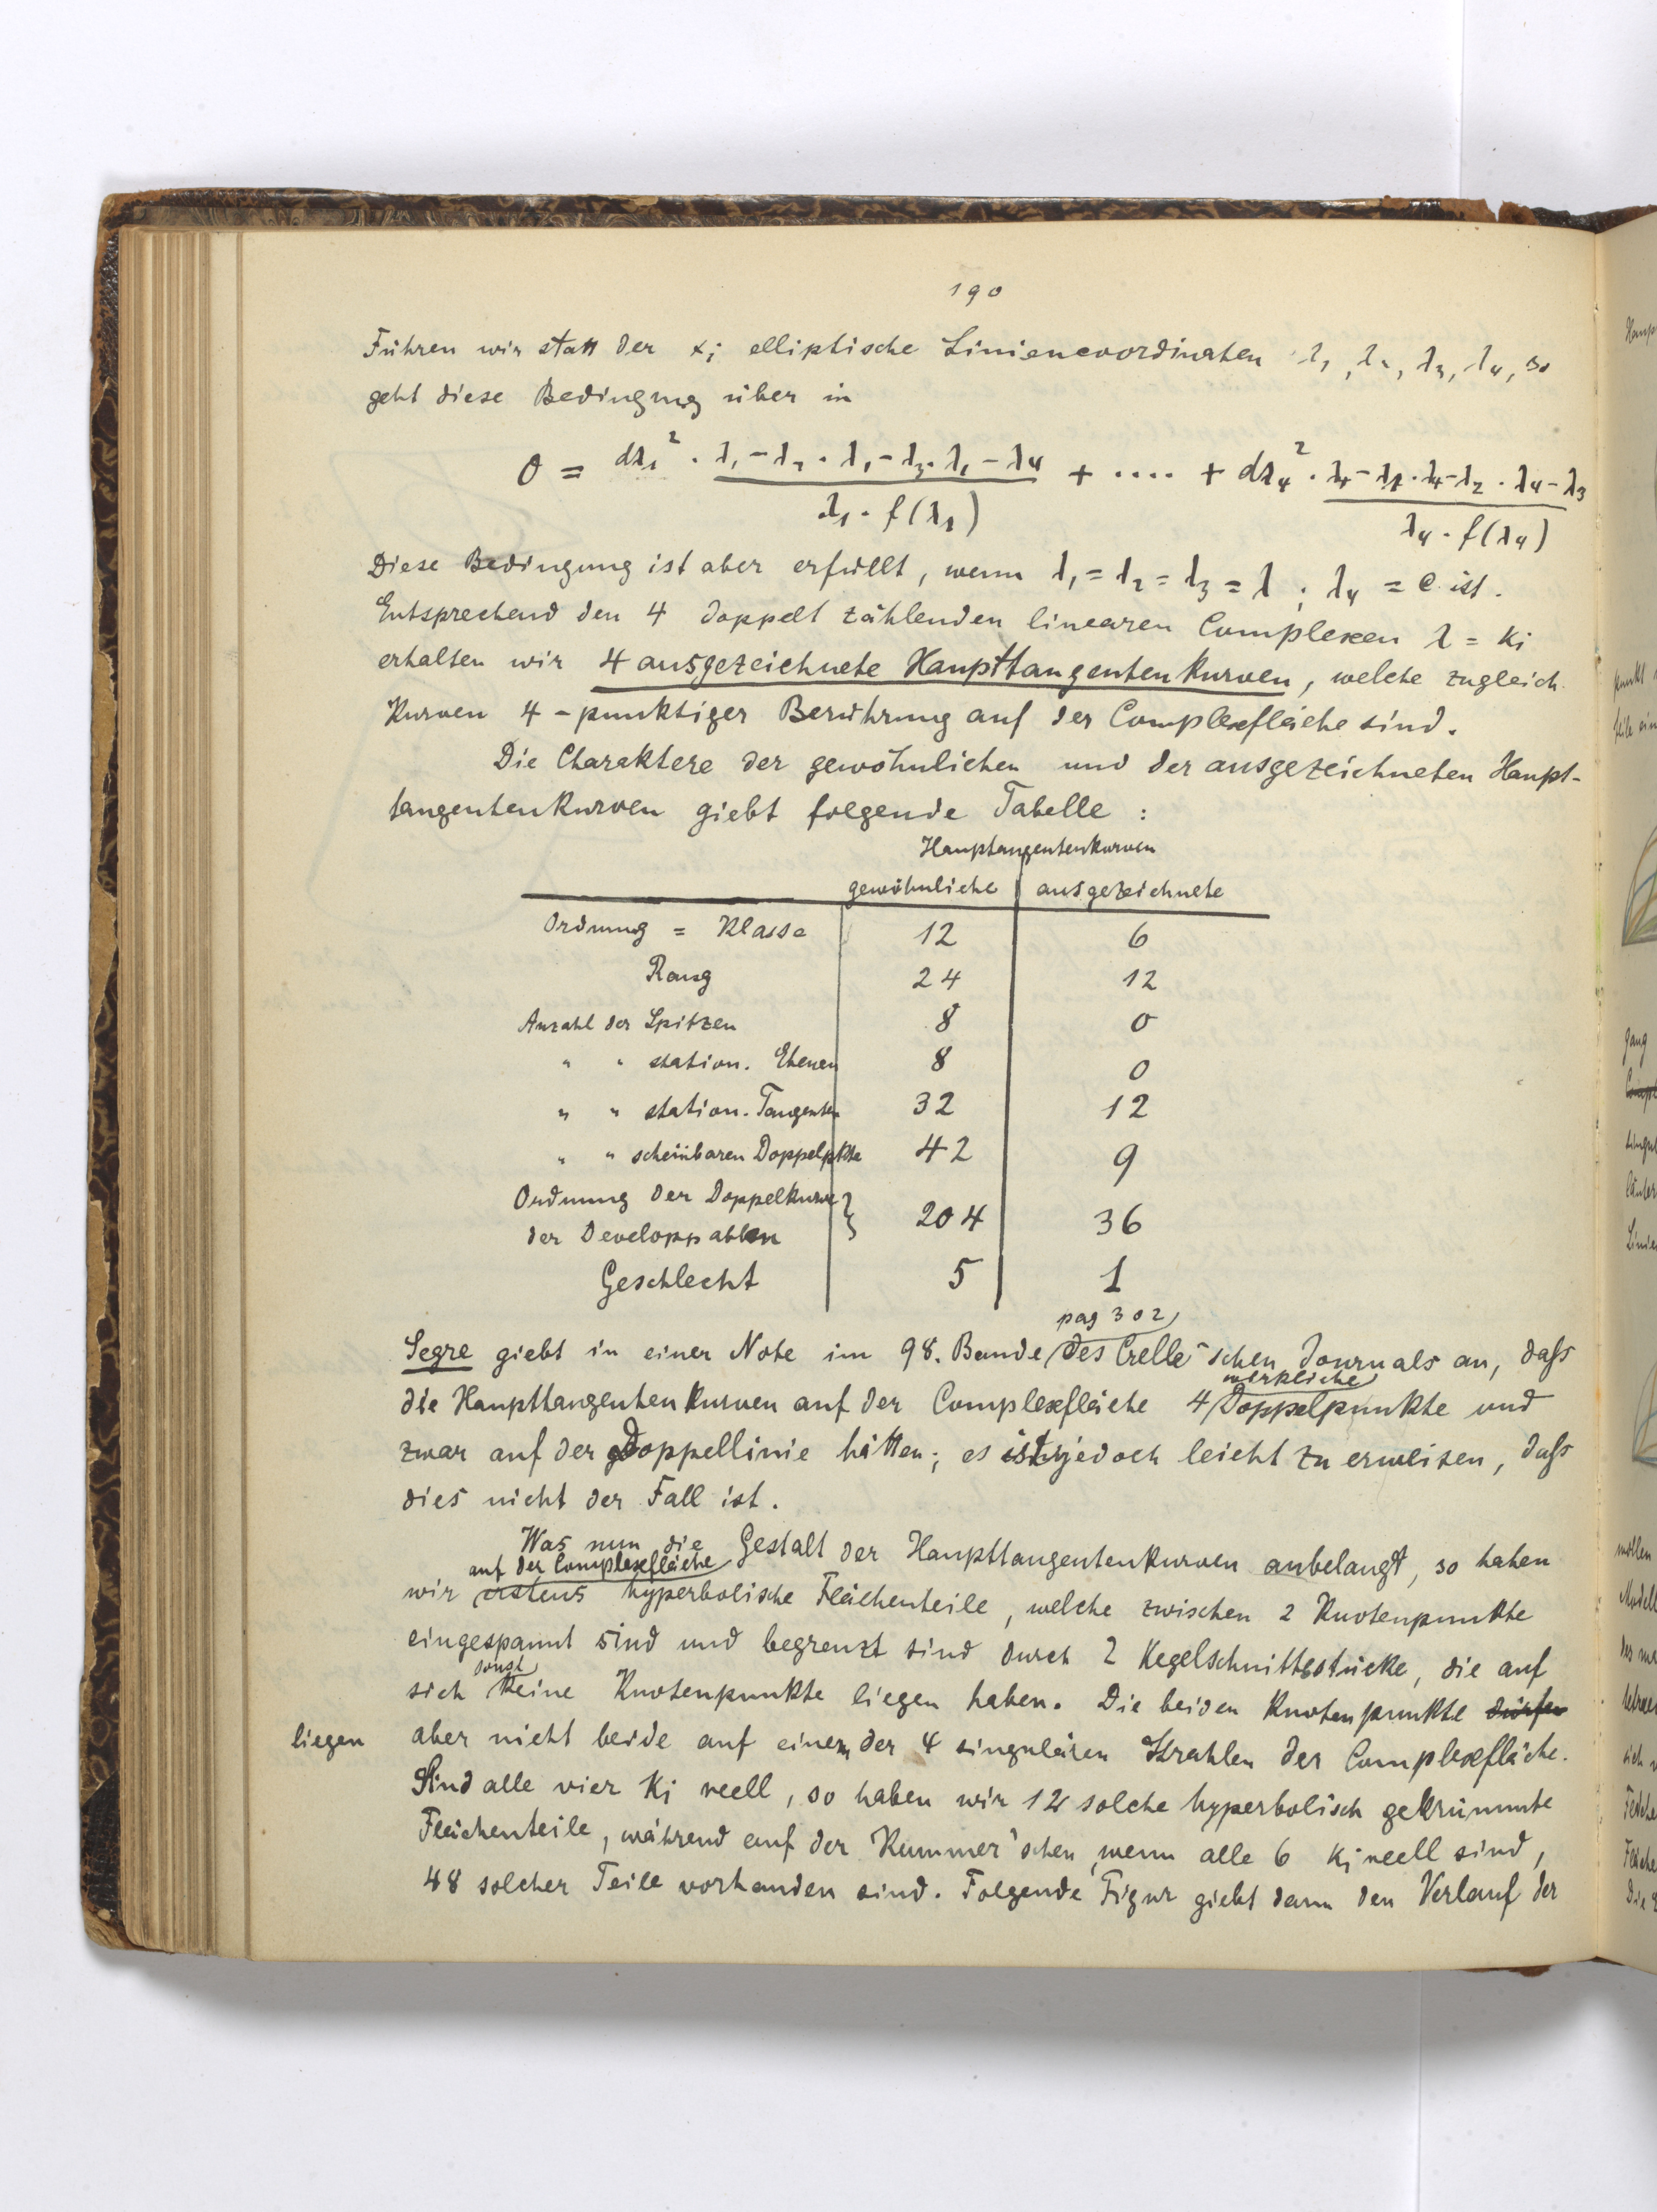 190
Führen wir statt der xi elliptische Liniencoordinaten λ1, λ2, λ3, λ4, so
geht diese Bedingung über in
0 = dλ1² · λ1-λ2 · λ1-λ3 · λ1-λ4 / λ1 · f(λ1) + .... + dλ4² · λ4-λ1 · λ4-λ2 · λ4-λ3 / λ4 · f(λ4)
Diese Bedingung ist aber erfüllt, wenn λ1 = λ2 = λ3 = λ ; λ4 = c ist.
Entsprechend den 4 doppelt zählenden linearen Complexen λ = ki
erhalten wir 4 ausgezeichnete Haupttangentenkurven, welche zugleich
Kurven 4-punktiger Berührung auf der Complexfläche sind.
Die Charaktere der gewöhnlichen und der ausgezeichneten Haupt-
tangentenkurven giebt folgende Tabelle :
Hauptangentenkurven
gewöhnliche ausgezeichnete
Ordnung = Klasse 12 6
Rang 24 12
Anzahl der Spitzen 8 0
" " station. Ebenen 8 0
" " station. Tangenten 32 12
" " scheinbaren Doppelpkte 42 9
Ordnung der Doppelkurve
der Developpablen } 204 36
Geschlecht 5 1
pag 302
Segre giebt in einer Note im 98. Bande des Crelle'schen Journals an, daſs
wirkliche
die Haupttangentenkurven auf der Complexfläche 4 Doppelpunkte und
zwar auf der Doppellinie hätten; es ist jedoch leicht zu erweisen, daſs
dies nicht der Fall ist.
Was nun die Gestalt der Haupttangentenkurven anbelangt, so haben
auf der Complexfläche
wir erstens hyperbolische Flächenteile, welche zwischen 2 Knotenpunkte
eingespannt sind und begrenzt sind durch 2 Kegelschnittsstücke, die auf
sonst
sich keine Knotenpunkte liegen haben. Die beiden Knotenpunkte dürfen
liegen aber nicht beide auf einem der 4 singulären Strahlen der Complexfläche.
Sind alle vier Ki reell, so haben wir 12 solche hyperbolisch gekrümmte
Flächenteile, während auf der Kummer'schen, wenn alle 6 ki reell sind,
48 solcher Teile vorhanden sind. Folgende Figur giebt dann den Verlauf der